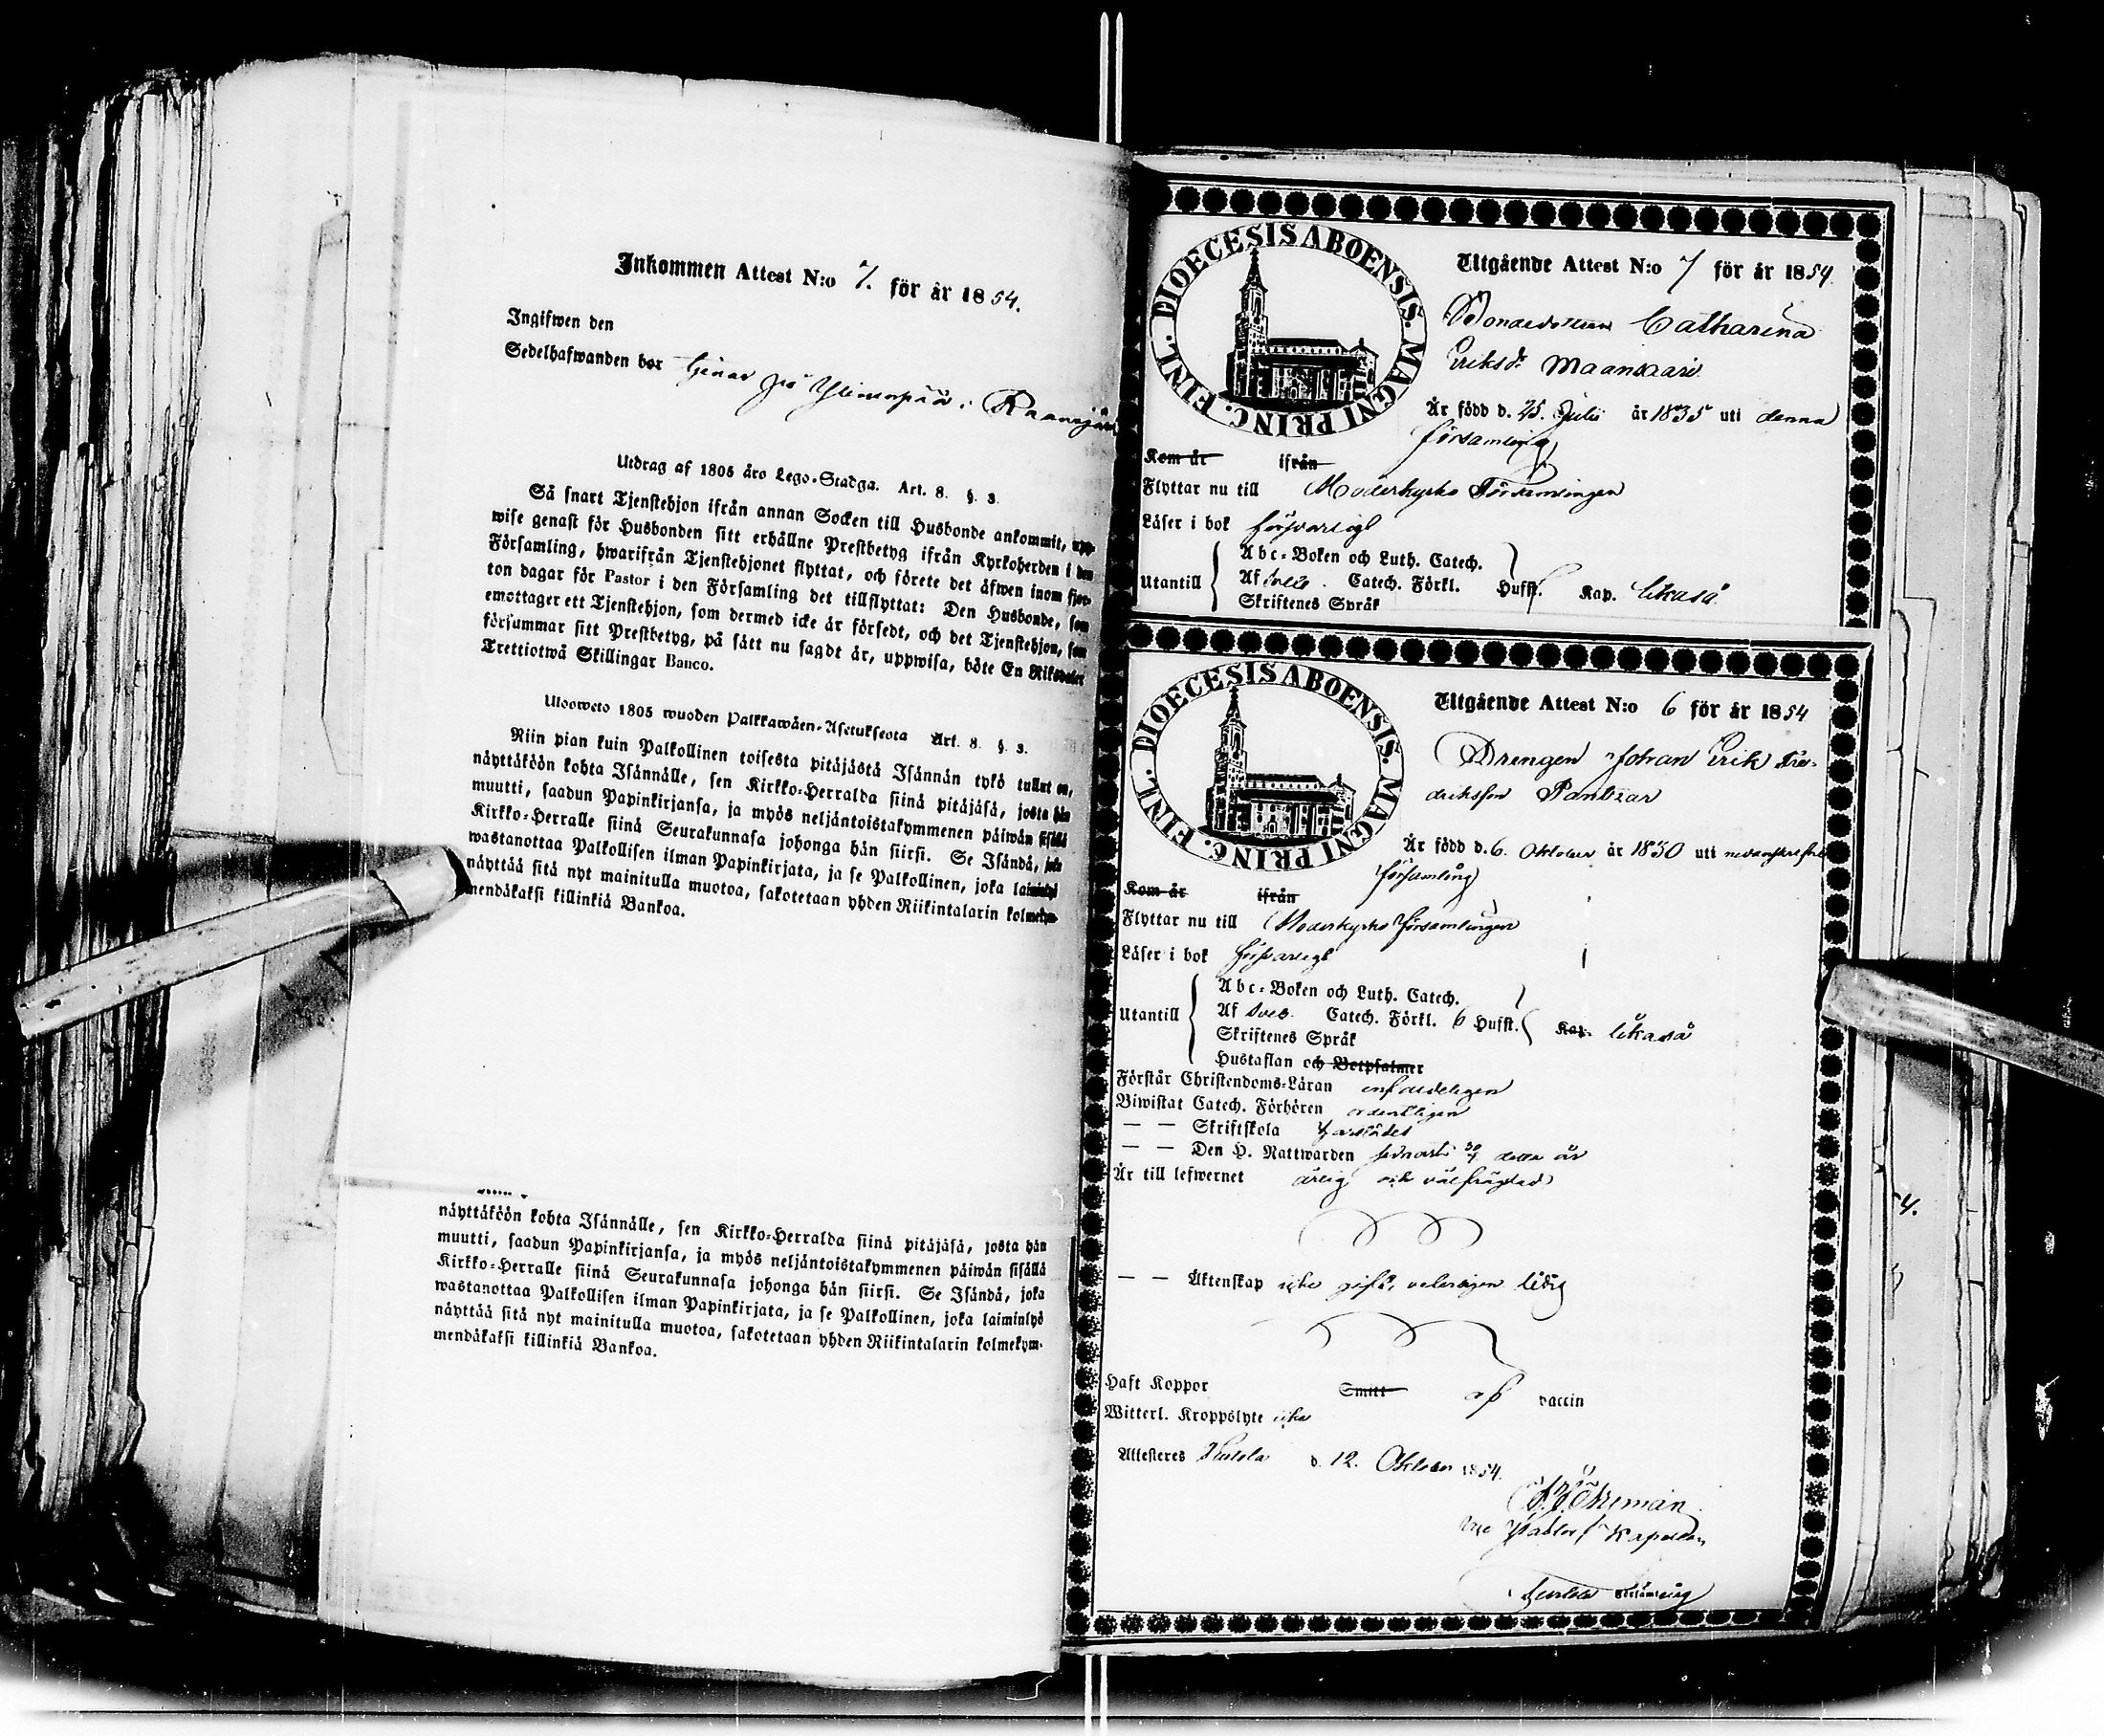 Inkommen Attest N:o 7. för år 1854.
Ingifwen den
Sedelhafwanden bor tjenar på
Utdrag af 1805 års Lego-Stadga. Art. 8. §. 3.
Så snart Tjenstehjon ifrån annan Socken till Husbonde ankommit, upp-
wise genast för Husbonden sitt erhållne Prestbetyg ifrån Kyrkoherden i den
Församling, hwarifrån Tjenstehjonet flyttat, och förete det äfwen inom fjor-
ton dagar för Pastor i den Församling det tillflyttat: Den Husbonde, som
emottager ett Tjenstehjon, som dermed icke är försedt, och det Tjenstehjon, som
försummar sitt Prestbetyg, på sätt nu sagdt är, uppwisa, böte En Riksdaler
Trettiotwå Skillingar Banco.
Ulosweto 1805 wuoden Palkkawäen-Asetuksesta Art. 8. §. 3.
Niin pian kuin Palkollinen toisesta pitäjästä Isännän tykö tullut on,
näyttäköön kohta Isännälle, sen Kirkko-Herralda siinä pitäjäsä, josta hän
muutti, saadun Papinkirjansa, ja myös neljäntoistakymmenen päiwän sisällä
Kirkko-Herralle siinä Seurakunnasa johonga hän siirsi. Se Isändä, joka
wastanottaa Palkollisen ilman Papinkirjata, ja se Palkollinen, joka laiminlyö
näyttää sitä nyt mainitulla muotoa, sakotetaan yhden Riikintalarin kolmekym-
mendäkaksi killinkiä Bankoa.
näyttäköön kohta Isännälle, sen Kirkko-Herralda siinä pitäjäsä, josta hän
muutti, saadun Papinkirjansa, ja myös neljäntoistakymmenen päiwän sisällä
Kirkko-Herralle siinä Seurakunnasa johonga hän siirsi. Se Isändä, joka
wastanottaa Palkollisen ilman Papinkirjata, ja se Palkollinen, joka laiminlyö
näyttää sitä nyt mainitulla muotoa, sakotetaan yhden Riikintalarin kolmekym-
mendäkaksi killinkiä Bankoa.
DIOECESIS ABOENSIS. MAGNI PRINC. FINL.
Utgående Attest N:o 7 för år 1854.
Bondedottren Catharina
Eriksdr Maansaari
Är född d. 25. Julii år 1835 uti denna
församling
Kom år ifrån
Flyttar nu till Moderkyrko Församlingen
Läser i bok försvarligt
Abc-Boken och Luth. Catech.
Utantill Af Sveb. Catech. Förkl. Hufst. Kap. likaså
Skriftenes Språk
DIOECESIS ABOENSIS. MAGNI PRINC. FINL.
Utgående Attest N:o 6 för år 1854
Drengen Johan Erik Fre-
driksson Pantzar
Är född d. 6. Oktober år 1830 uti
församling
Kom år ifrån
Flyttar nu till Moderkyrko församlingen
Läser i bok försvarligt
Abc-Boken och Luth. Catech.
Utantill Af Sveb. Catech. Förkl. 6 Hufst. Kap. likaså
Skriftenes Språk
Hustaflan och Botpsalmer
Förstår Christendoms-Läran enfaldeligen
Biwistat Catech. Förhören ordentligen
— — Skriftskola
— — Den H. Nattwarden sednast 30/7 detta år
Är till lefwernet ärlig och välfräjdad
— — Äktenskap icke gift, veterligen ledig
Haft Koppor Smitt af vaccin
Witterl. Kroppslyte icke
Attesteres d. 12. Oktober 1854.
Vice Pastor Kapellan
Församling
4.